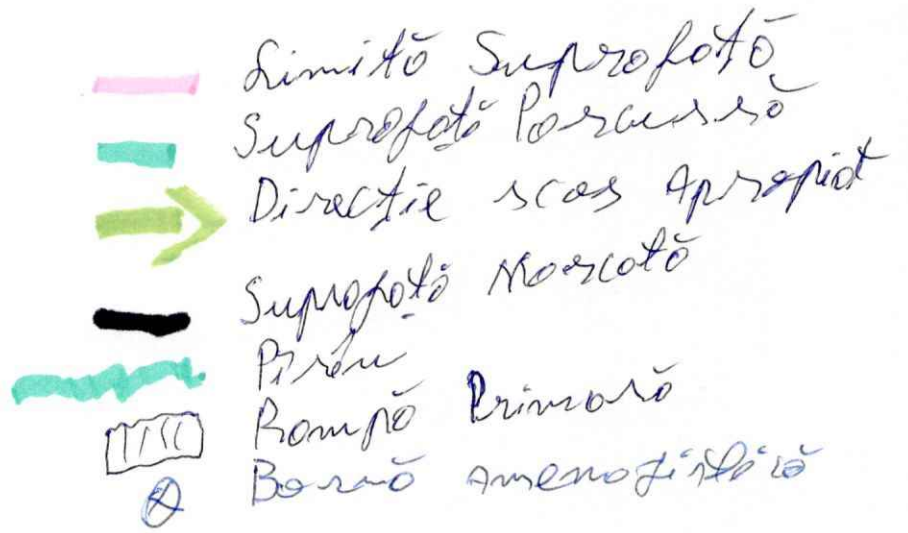 Limită Suprafață
Suprafață Parcursă
Direcție scos Apropiat
Suprafață Marcată
Pârâu
Rampă Primară
Bornă amenajistică